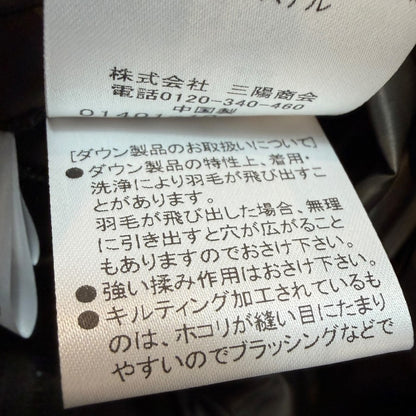 株式会社 三陽商会
電話0120-340-460
中国製
[ダウン製品のお取扱いについて]
●ダウン製品の特性上、着用・
洗浄により羽毛が飛び出すこ
とがあります。
羽毛が飛び出した場合、無理
に引き出すと穴が広がること
もありますのでおさけ下さい。
●強い揉み作用はおさけ下さい。
●キルティング加工されているも
のは、ホコリが縫い目にたまり
やすいのでブラッシングなどで